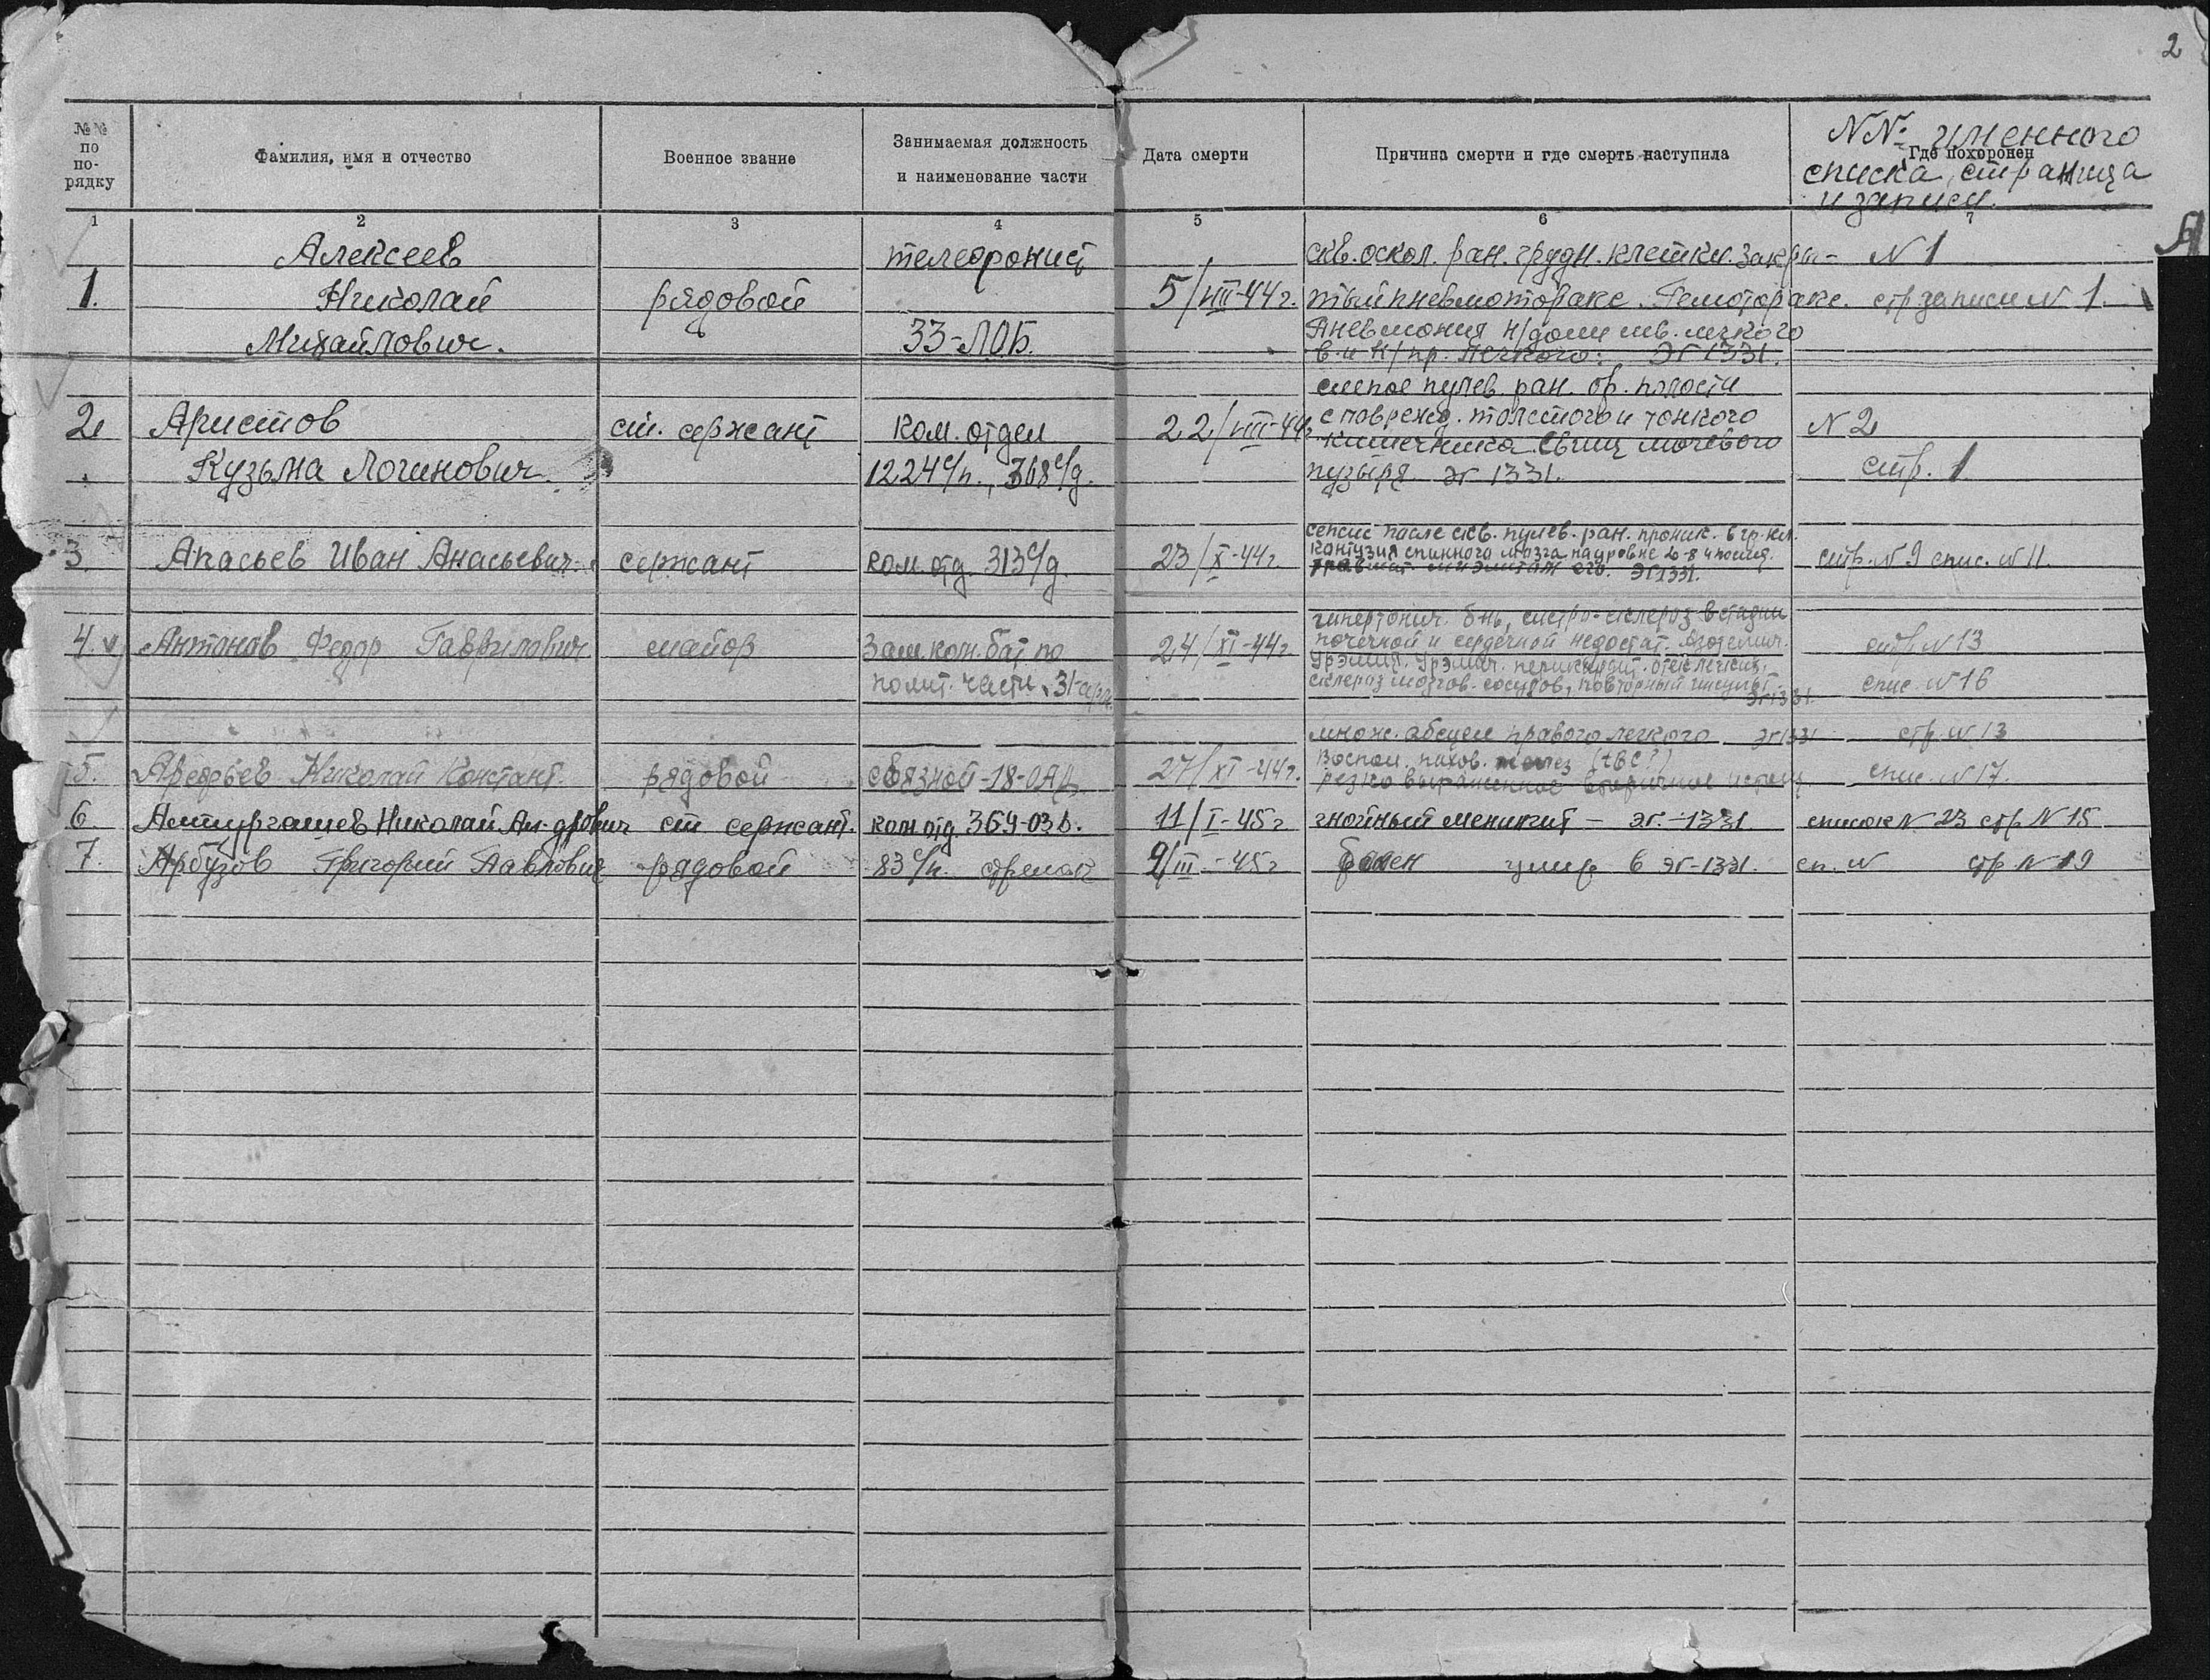 2
№№ по по-рядку
Фамилия, имя и отчество
Военное звание
Занимаемая должность
и наименование части
Дата смерти
Причина смерти и где смерть наступила
Где похоронен
NN: именного
списка, страница
и записи.
1 2 3 4 5 6 7
А
Алексеев телефонист скв. оскол. ран. грудн. клетки. Закры- N 1
1. Николай рядовой 5/VIII-44г. тый пневмоторакс. Гемоторакс. стр записи N 1.
Михайлович. 33-ЛОБ. Пневмония н/доли лев. легкого
в. и н/пр. легкого. ЭГ 1331.
слепое пулев. ран. бр. полости
2. Аристов ст. сержант ком. отдел 22/VIII-44г с поврежд. толстого и тонкого N 2
кишечника. Свищ мочевого
Кузьма Логинович. 1224 с/п., 368 с/д. пузыря. ЭГ 1331. стр. 1.
сепсис после скв. пулев. ран. проник. в гр. кл.
3. Апасьев Иван Анасьевич. сержант ком. отд. 313 с/д. 23/X-44г. контузия спинного мозга на уровне стр. N 9 спис. N 11.
ЭГ 1331.
гипертонич. б-нь, склероз в стадии
4. Антонов Федор Гаврилович. майор Зам. ком. бат по 24/XI-44г почечной и сердечной недостат. Азотемич. стр. N 13
Урэмия. Урэмич. перикардит. отек легких.
полит. части, 31 склероз мозгов. сосудов, повторный инсульт. спис. N 16
ЭГ 1331.
множ. абсцесс правого легкого ЭГ 1331 стр. N 13
5. Арефьев Николай Констант. рядовой связной-18-ОАД. 27/XI-44г. Воспал. пахов. желез (tBC?)
резко выраженное вторичное истощ. спис. N 17.
6. Амтургашев Николай Ан-дрович ст сержант. ком отд. 369-ОЗД. 11/I-45г гнойный менингит - ЭГ.-1331. список N 23 стр N 15
7. Арбузов Григорий Павлович рядовой 83 с/п. стрелок 9/III-45г болен умир в ЭГ-1331. сп. N стр N 19